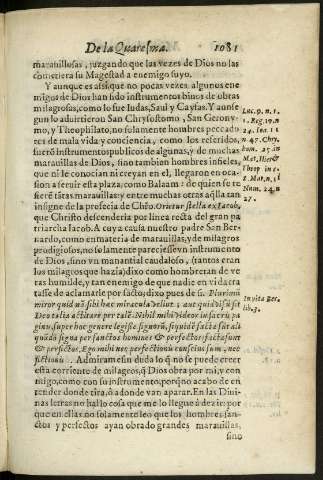 De la Quaresma. 1081
marauillosas, juzgando que las vezes de Dios no las
cometiera su Magestad a enemigo suyo.
Y aunque es assi, que no pocas vezes algunos ene
migos de Dios han sido instrumentos biuos de obras
milagrosas, como lo fue Iudas, Saul y Cayfas. Y aunse
gun lo aduirtieron San Chrysostomo, San Gerony-
mo, y Theophilato, no solamente hombres peccado
res de mala vida y conciencia, como los referidos,
fueró instrumentos publicos de algunas, y de muchas
marauillas de Dios, sino tambien hombres infieles,
que ni le conocian ni creyan en el, llegaron en occa
sion a seruir esta plaza, como Balaam: de quien se te
fieró
marauillas: y entre muchas otras aqlla tan
insigne de la profecia de Chřo. Orietur stella ex Iacob,
que Christo descenderia por linea recta del gran pa
triarcha Iacob. A cuya causa nuestro padre San Ber-
nardo, como en materia de marauillas, y de milagros
prodigiosos, no solamente
instrumento
de Dios, sino vn manantial caudaloso, (tantos eran
los milagros que hazia) dixo como hombre tan de ve
ras humilde, y tan enemigo de que nadie en vida tra
tasse de aclamarle por sacto; dixo pues de si. Plurimũ
miror quid
sibi hæc miracula velint; aut quid visũ sit
Deo talia actitare per talẽ. Nihil mihi videor in sacris pa
ginis, super hoc genere legisse signorũ, siquidẽ facta sũt ali
quãdo signa per sanctos homines & perfectos, facta sunt
& per fictos. Ego mihi nec perfectionis conscius sum, nec
fictionis. Admirame sin duda lo q̃ no se puede creer
esta corriente de milagros, q̃ Dios obra por mi, y con
migo, como con su instrumento, porq̃ no acabo de en
tender donde tira, ò a donde van aparar. En las Diui-
nas letras no hallo cosa que me lo llegue à dezir: por
que en ellas no solamente leo que los hombres san-
ctos y perfectos ayan obrado grandes marauillas,
sino
Luc. 9. n. 1.
1. Reg. 19. n
24. Ioa. 11
n 47. Chry.
hom. 25. in
Mat. Hier &
Theop in c.
Num. 24. n
27.
In vita Ber.
lib. 3.